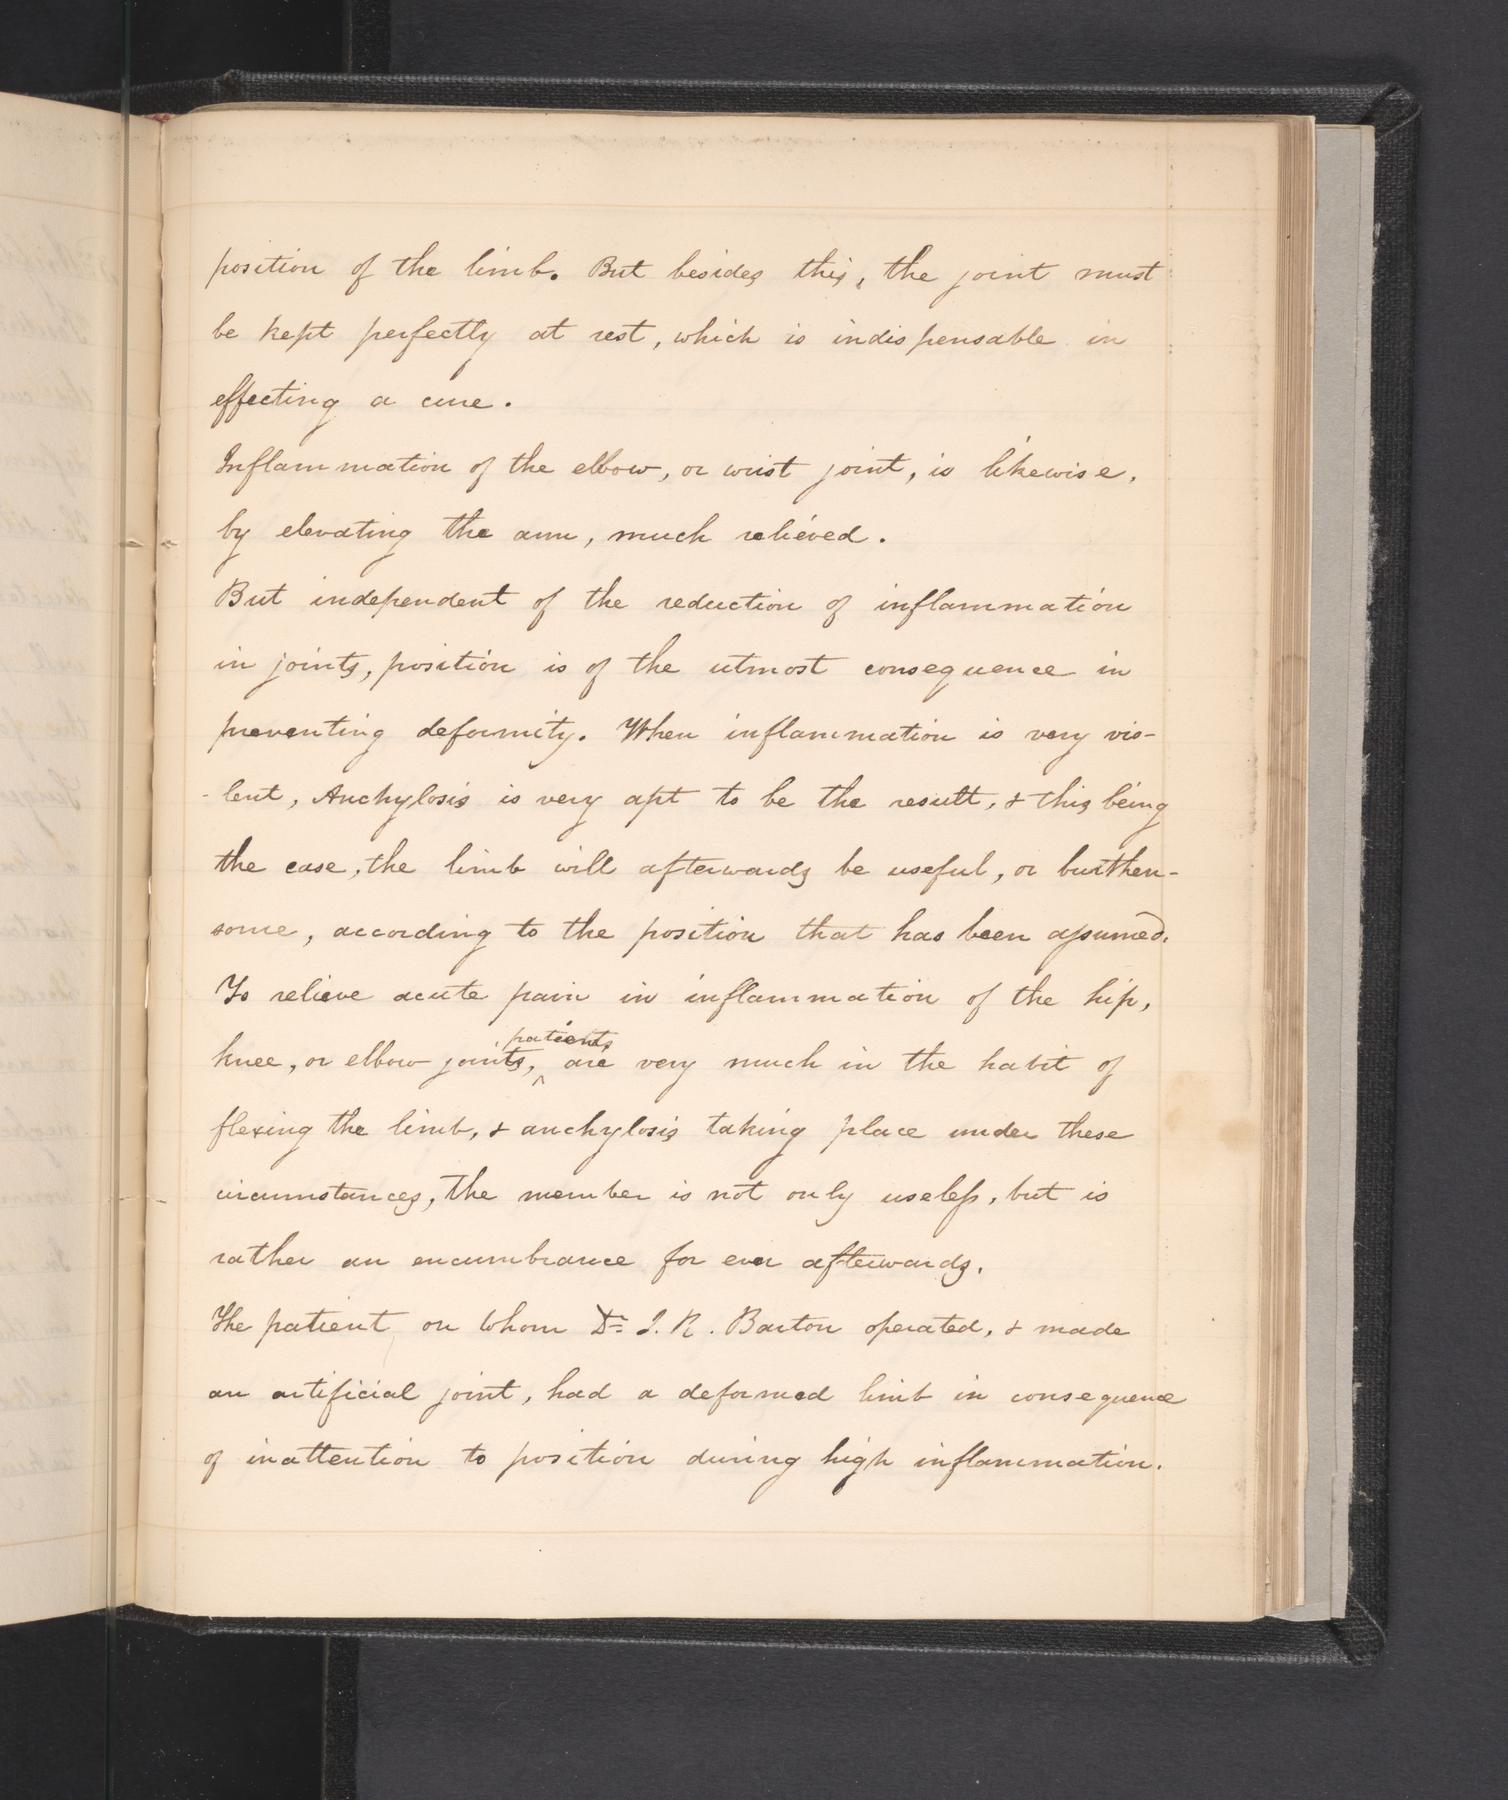 position of the limb. But besides this, the joint must
be kept perfectly at rest, which is indispensable in
effecting a cure.
Inflammation of the elbow, or wrist joint, is likewise,
by elevating the arm, much relieved.
But independent of the reduction of inflammation
in joints, position is of the utmost consequence in
preventing deformity. When inflammation is very vio-
-lent, Anchylosis is very apt to be the result, & this being
the case, the limb will afterwards be useful, or burthen-
some, according to the position that has been assumed.
To relieve acute pain in inflammation of the hip,
patients
knee, or elbow joints, ^ are very much in the habit of
flexing the limb, & anchylosis taking place under these
circumstances, the member is not only useless, but is
rather an encumbrance for ever afterwards.
The patient on whom Dr. J. R. Barton operated, & made
an artificial joint, had a deformed limb in consequence
of inattention to position during high inflammation.